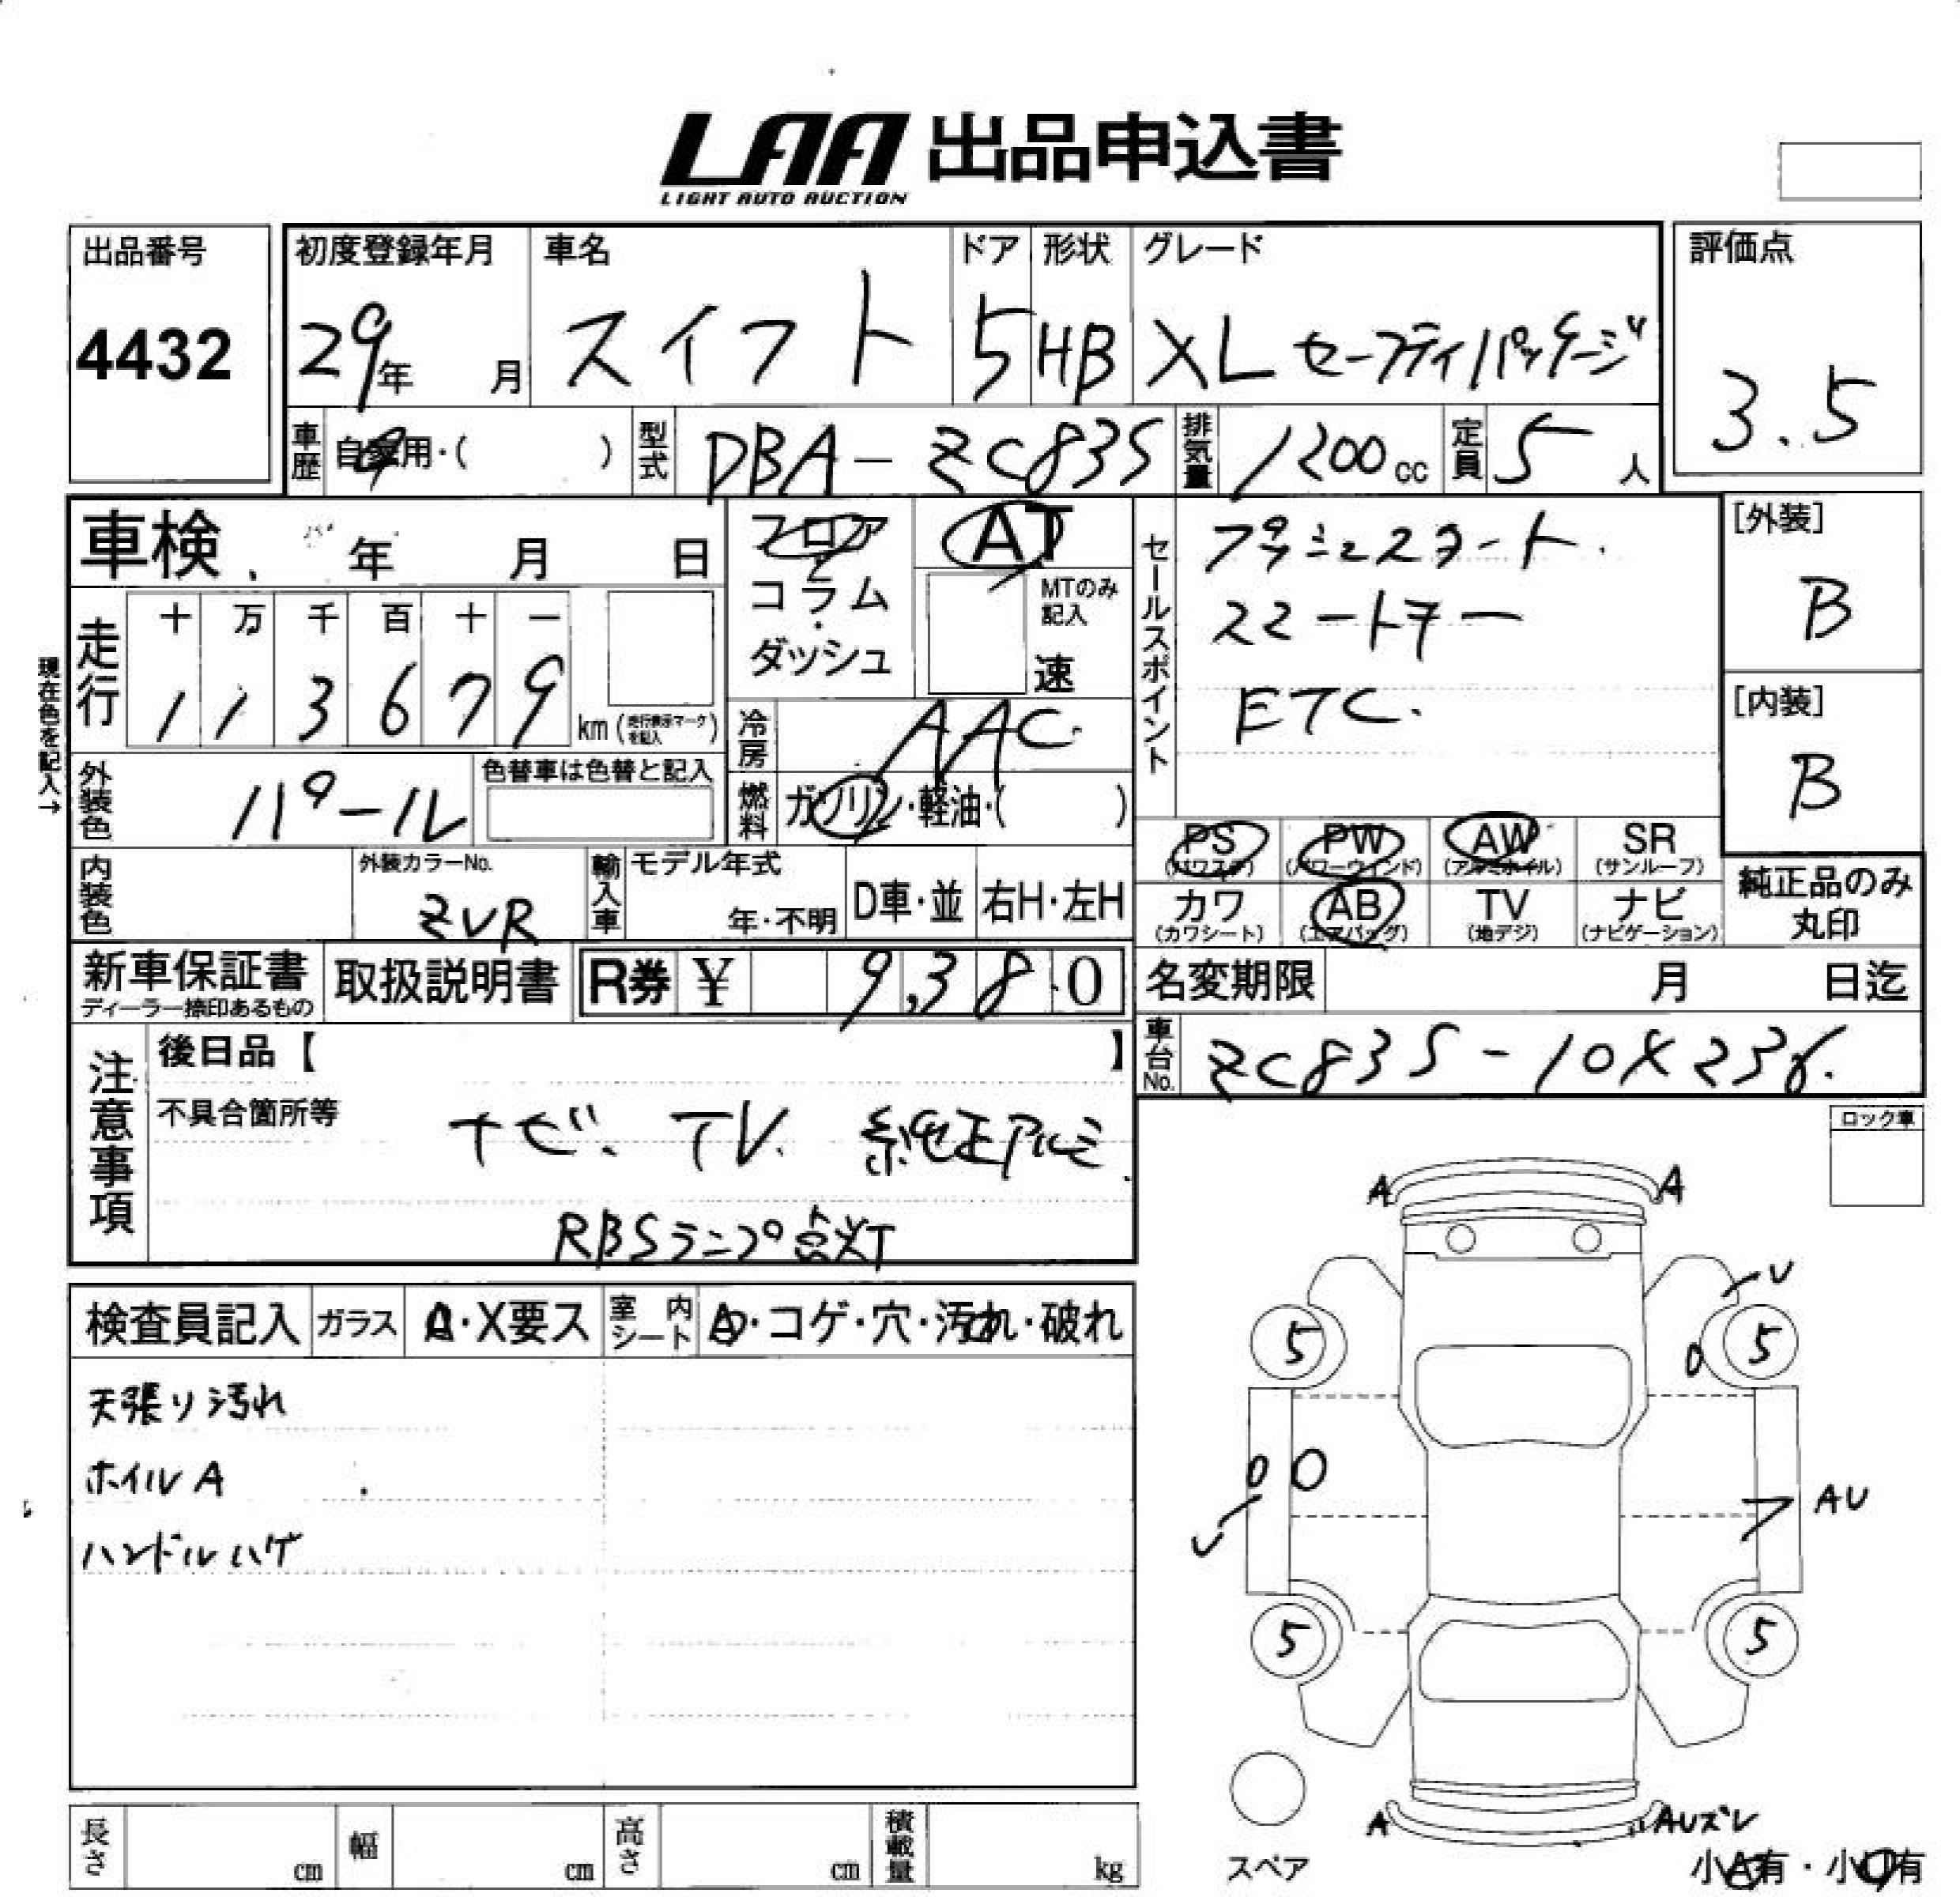 LAA 出品申込書
LIGHT AUTO AUCTION
出品番号
4432
初度登録年月
29年 月
車名
スイフト
ドア
5
形状
HB
グレード
XL セーフティパッケージ
評価点
3.5
車歴 自家用・( )
型式 DBA-ZC83S
排気量 1200 cc
定員 5 人
車検 年 月 日
フロア
コラム
ダッシュ
AT
MTのみ
記入
速
セールスポイント
プッシュスタート.
シートヒーター
ETC.
[外装]
B
[内装]
B
現在色を記入→
走行
十 万 千 百 十 一
1 1 3 6 7 9
km (走行表示マークを記入)
冷房 AAC
燃料 ガソリン・軽油・( )
外装色 パール
色替車は色替と記入
PS
(パワステ)
PW
(パワーウィンド)
AW
(アルミホイル)
SR
(サンルーフ)
カワ
(カワシート)
AB
(エアバッグ)
TV
(地デジ)
ナビ
(ナビゲーション)
純正品のみ
丸印
内装色
外装カラーNo.
ZVR
輸入車
モデル年式
年・不明
D車・並
右H・左H
新車保証書
ディーラー捺印あるもの
取扱説明書
R券 ¥ 9,380
名変期限 月 日迄
車台No. ZC83S-10X236.
注意事項
後日品【 】
不具合箇所等
ナビ、TV. 純正アルミ
RBSランプ点灯
ロック車
検査員記入
ガラス
A・X要ス
室内シート
A・コゲ・穴・汚れ・破れ
天張り汚れ
ホイルA
ハンドルハゲ
A A
U
5 5
U
AU
5 5
A AUズレ
スペア
小A有・小U有
長さ cm
幅 cm
高さ cm
積載量 kg